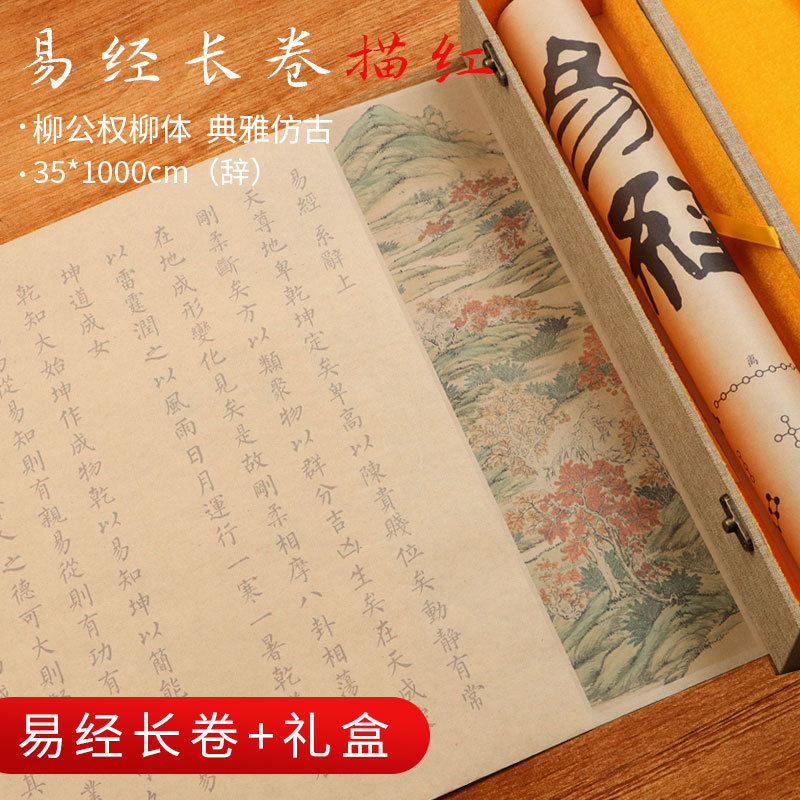 易经长卷描红
·柳公权柳体 典雅仿古
·35*1000cm（辞）
易經
离
易經 系辭上
天尊地卑乾坤定矣卑高以陳貴賤位矣動靜有常
剛柔斷矣方以類聚物以群分吉凶生矣在天成
在地成形變化見矣是故剛柔相摩八卦相蕩
以雷霆潤之以風雨日月運行一寒一暑乾
坤道成女
乾知大始坤作成物乾以易知坤以簡能
易從易知則有親易從則有功有
人之德可大則
易经长卷+礼盒